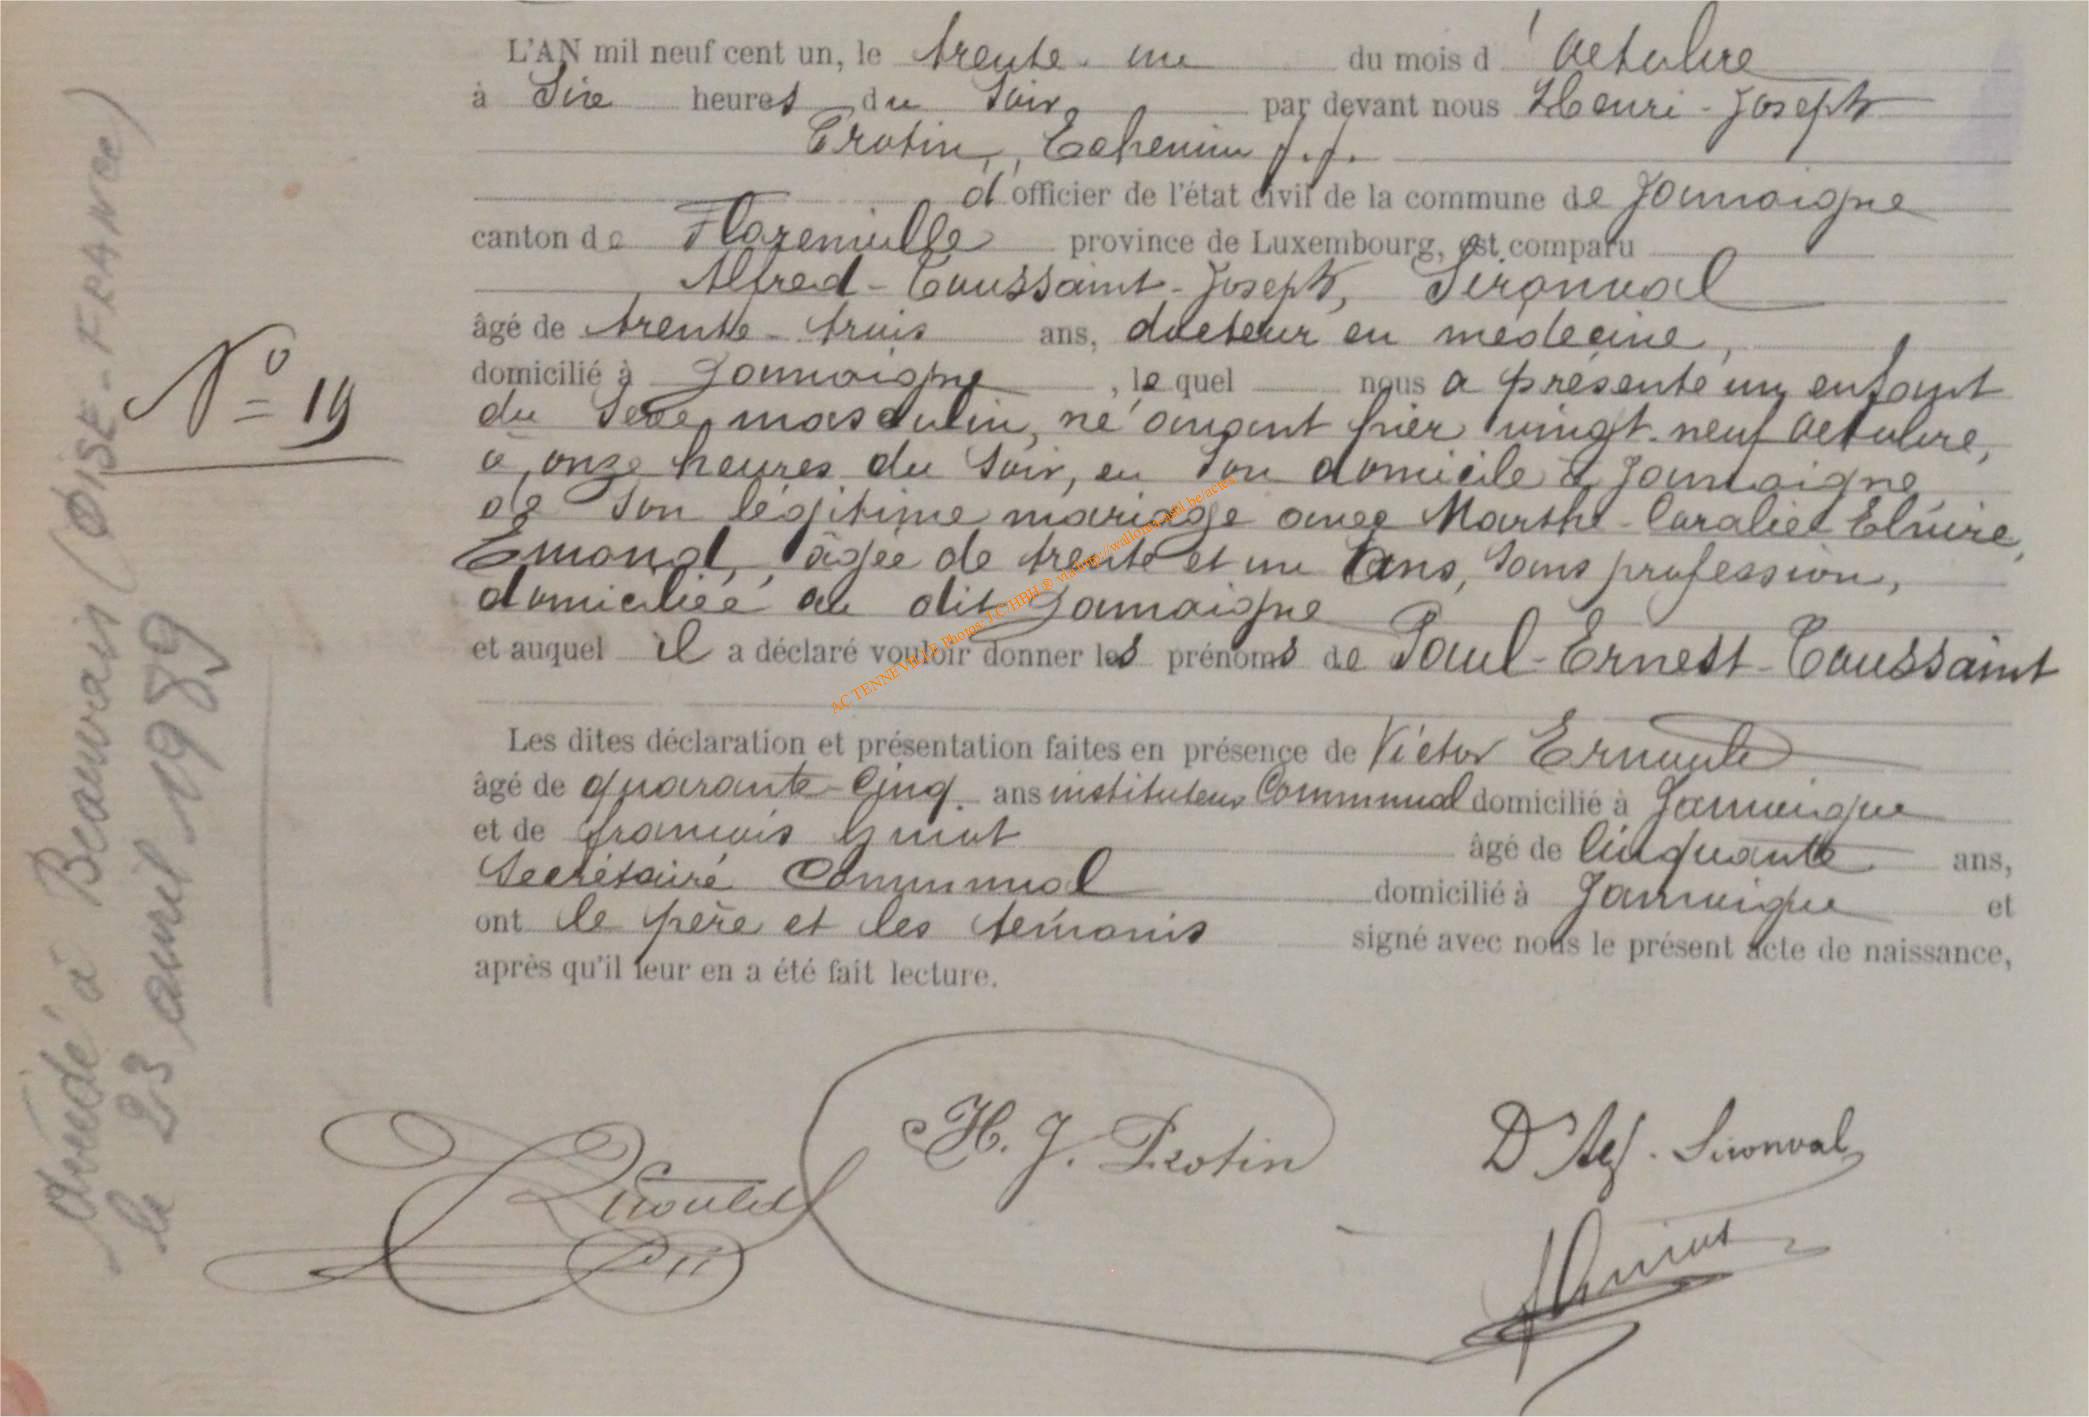 L'AN mil neuf cent un, le trente-un du mois d'Octobre
à Six heures du Soir, par devant nous Henri-Joseph
Protin, Echevin f.f.
d'officier de l'état civil de la commune de Jamoigne
canton de Florenville province de Luxembourg, est comparu
Alfred-Toussaint-Joseph, Sironval
âgé de trente-trois ans, docteur en médecine,
domicilié à Jamoigne, lequel nous a présenté un enfant
du Sexe masculin, né avant hier vingt-neuf Octobre,
à onze heures du Soir, en Son domicile à Jamoigne
de Son légitime mariage avec Marthe-Coralie Elvire
Emond, âgée de trente et un ans, Sans profession,
domiciliée au dit Jamoigne
et auquel il a déclaré vouloir donner les prénoms de Paul-Ernest-Toussaint
Les dites déclaration et présentation faites en présence de Victor
âgé de quarante-Cinq ans instituteur Communal domicilié à Jamoigne
et de François Guiot âgé de Cinquante ans,
Secrétaire Communal domicilié à Jamoigne et
ont le père et les témoins signé avec nous le présent acte de naissance,
après qu'il leur en a été fait lecture.
H. J. Protin
Dr Alf. Sironval
Guiot
N° 19
décédé à Beauvais (OISE-FRANCE)
le 23 avril 1989
AC TENNEVILLE Photos: J.C/HBH ® via http://wallonia-asbl.be/actes